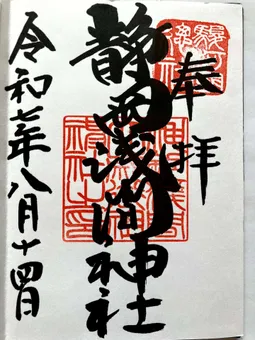 奉拝
静岡浅間神社
令和七年八月十四日